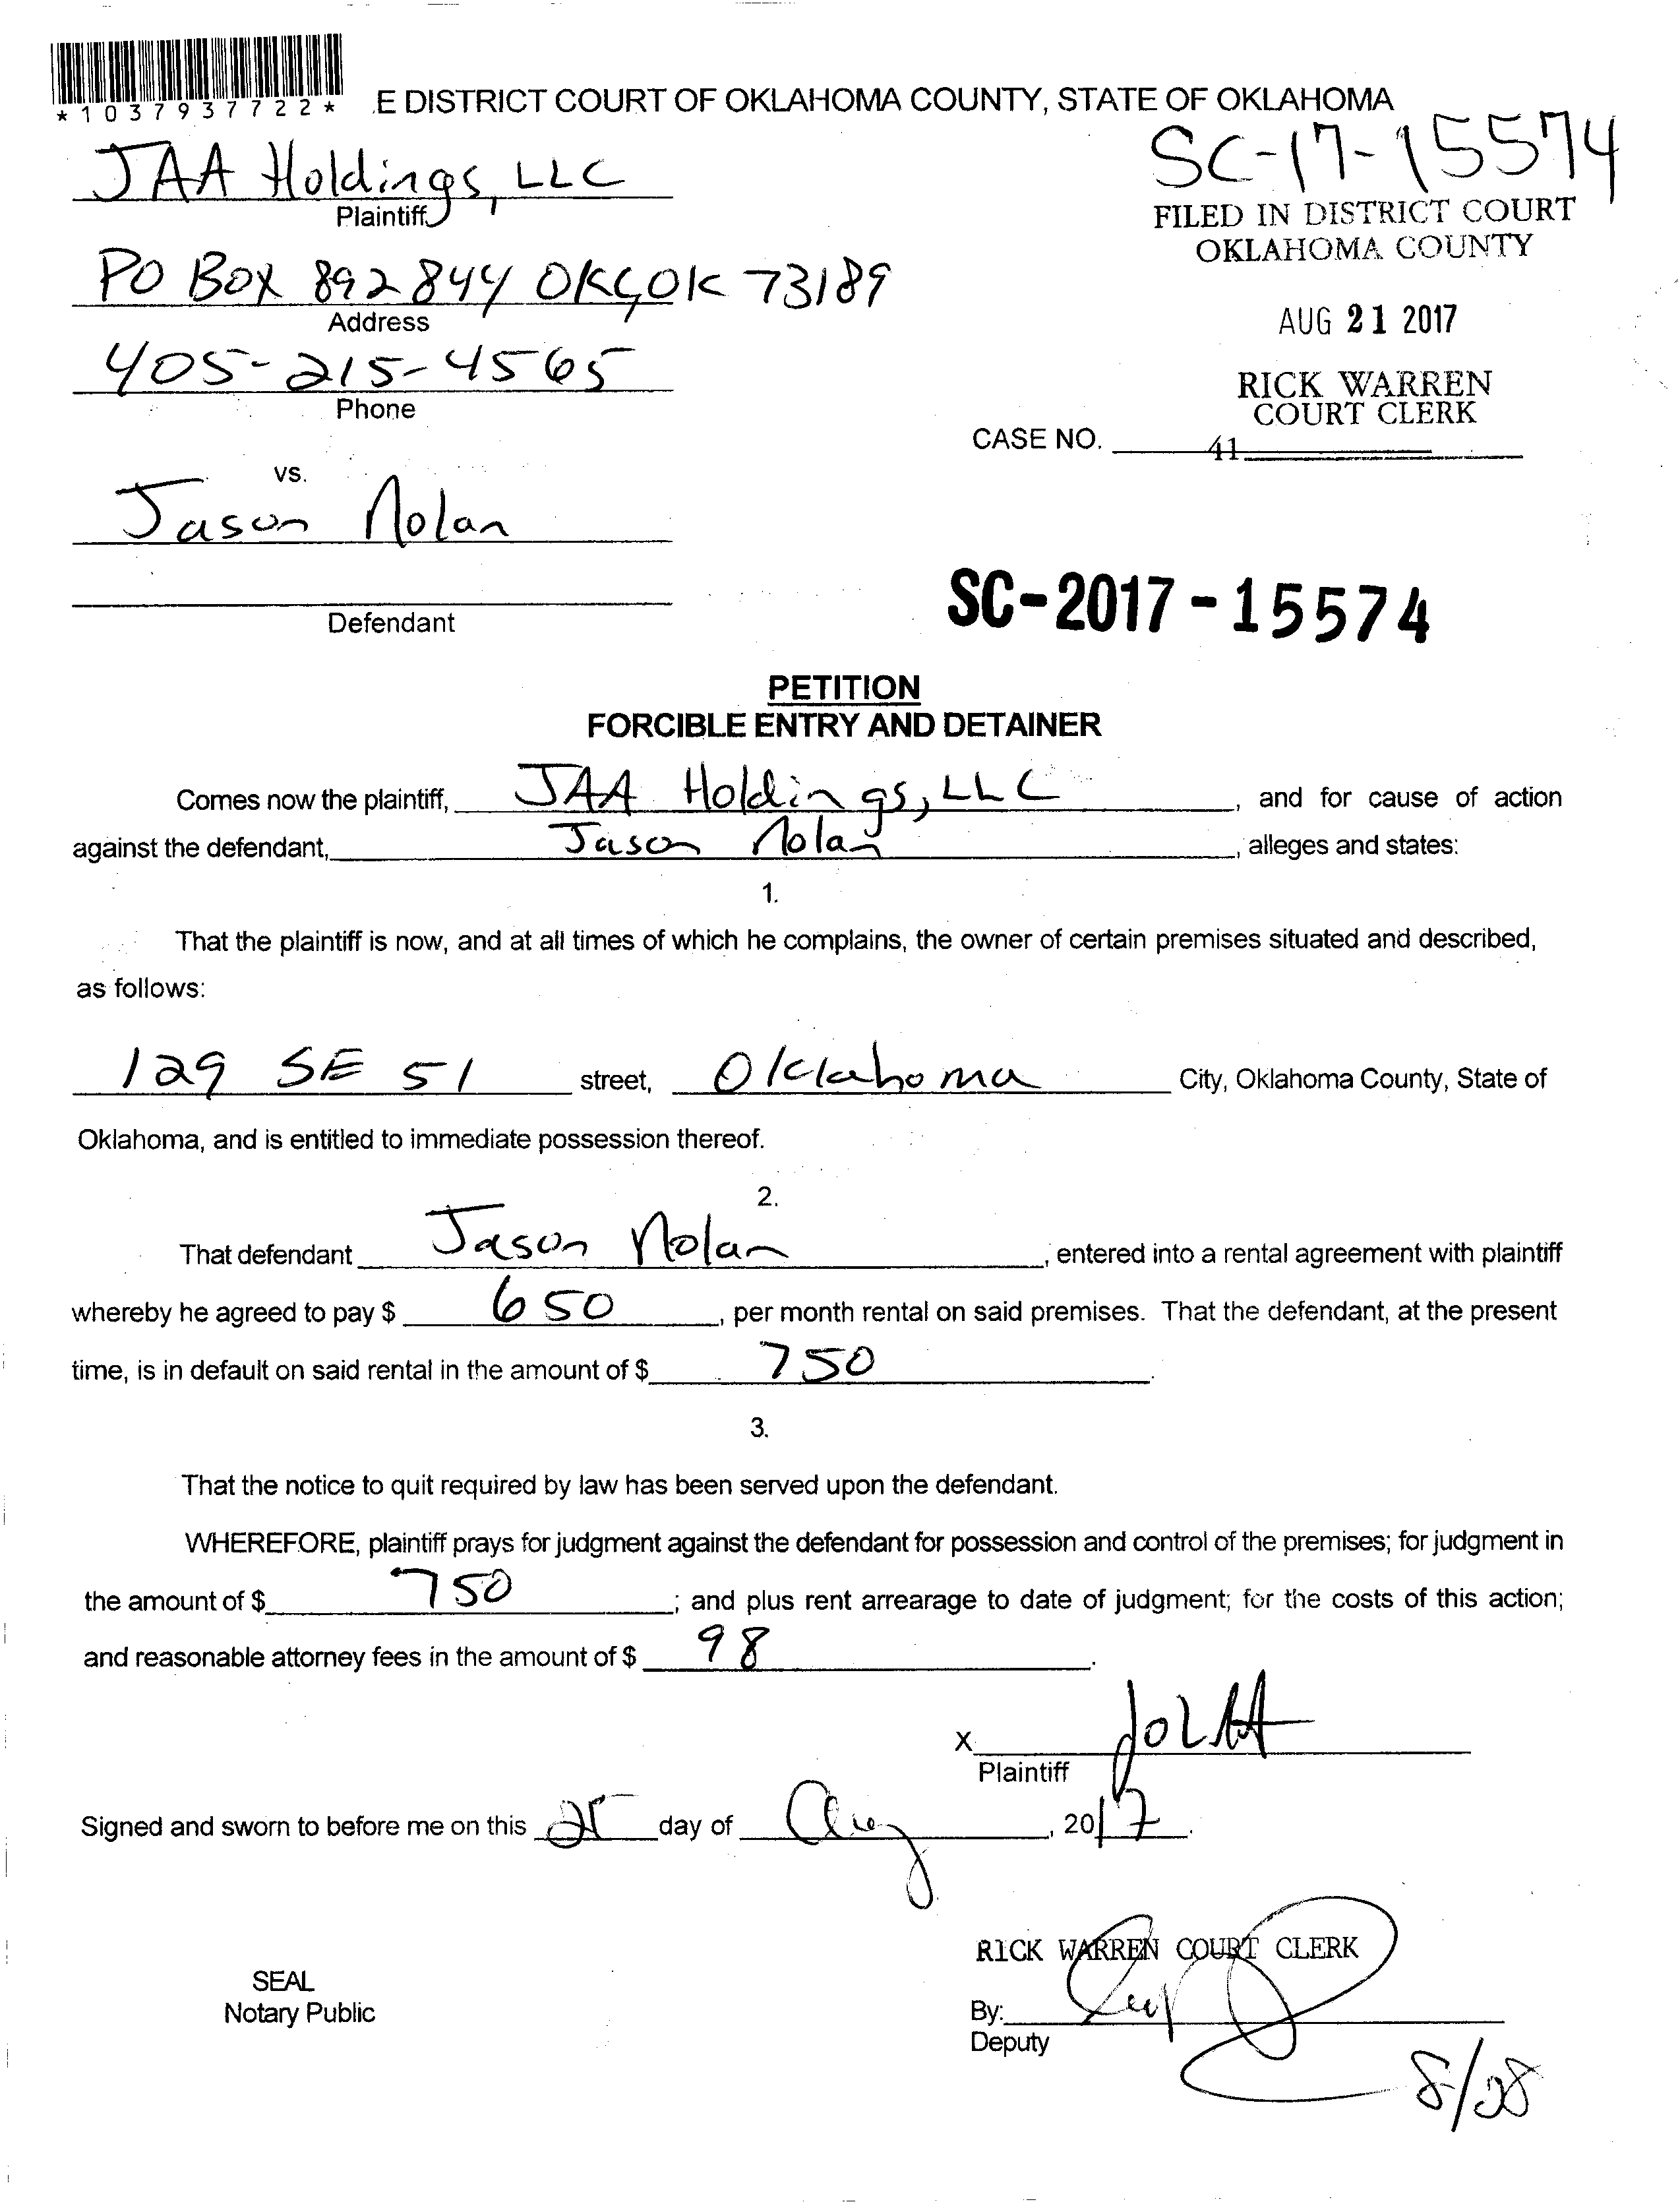 *1037937722*
.E DISTRICT COURT OF OKLAHOMA COUNTY, STATE OF OKLAHOMA
SC-17-15574
JAA Holdings, LLC
Plaintiff
FILED IN DISTRICT COURT
OKLAHOMA COUNTY
PO Box 892844 OKC, OK 73189
Address
AUG 21 2017
405-215-4565
Phone
RICK WARREN
COURT CLERK
CASE NO. 41
vs.
Jason Nolan
Defendant
SC-2017-15574
PETITION
FORCIBLE ENTRY AND DETAINER
Comes now the plaintiff, JAA Holdings, LLC, and for cause of action
against the defendant, Jason Nolan, alleges and states:
1.
That the plaintiff is now, and at all times of which he complains, the owner of certain premises situated and described,
as follows:
129 SE 51 street, Oklahoma City, Oklahoma County, State of
Oklahoma, and is entitled to immediate possession thereof.
2.
That defendant Jason Nolan, entered into a rental agreement with plaintiff
whereby he agreed to pay $ 650, per month rental on said premises. That the defendant, at the present
time, is in default on said rental in the amount of $ 750.
3.
That the notice to quit required by law has been served upon the defendant.
WHEREFORE, plaintiff prays for judgment against the defendant for possession and control of the premises; for judgment in
the amount of $ 750; and plus rent arrearage to date of judgment; for the costs of this action;
and reasonable attorney fees in the amount of $ 98.
X
Plaintiff
Signed and sworn to before me on this day of Aug, 2017.
RICK WARREN COURT CLERK
SEAL
Notary Public
By:
Deputy
8/28